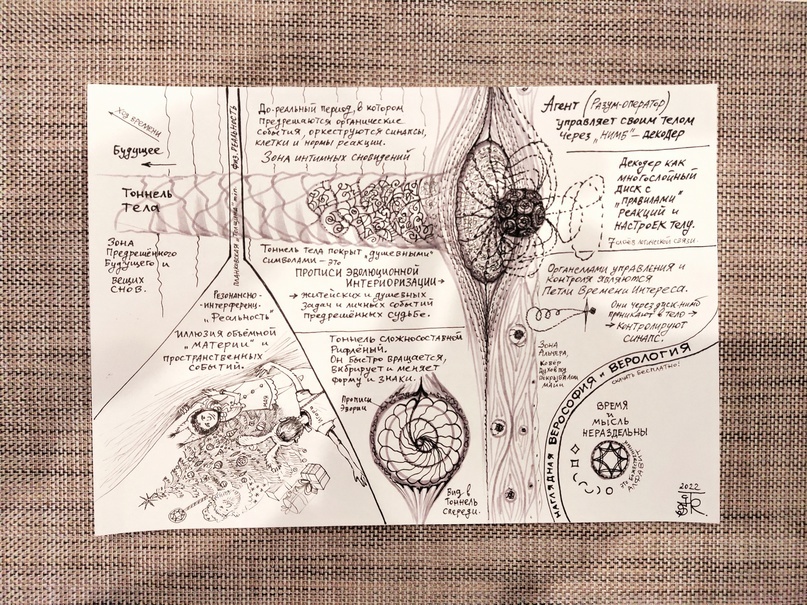 Ход времени
Будущее
Тоннель
Тела
Зона
Предрешённого
Будущего и
вещих
снов.
физ. РЕАЛЬНОСТЬ
До-реальный период, в котором
предрешаются органические
события, оркеструются синапсы,
клетки и нормы реакции.
Зона интимных сновидений
Тоннель тела покрыт „душевными"
символами — это
ПРОПИСИ ЭВОЛЮЦИОННОЙ
ИНТЕРИОРИЗАЦИИ
житейских и душевных
задач и личных событий
предрешённых судьбе.
Резонансно-
-интерференц.
„Реальность"
Иллюзия объёмной
„материи" и
пространственных
событий.
Тоннель сложносоставной
Рифлёный.
Он быстро вращается,
вибрирует и меняет
форму и знаки.
Прописи
Вид в
тоннель
спереди.
Агент (Разум-оператор)
управляет своим телом
через „НИМБ" — декодер
Декодер как
многослойный
диск с
„правилами"
реакций и
настроек телу.
7 слоёв логической связи.
Органеллами управления и
контроля являются
Петли Времени Интереса.
Они через диск-нимб
проникают в тело →
→ контролируют
синапс.
Зона
НАГЛЯДНАЯ ВЕРОСОФИЯ и ВЕРОЛОГИЯ
скачать бесплатно!
ВРЕМЯ
и
МЫСЛЬ
НЕРАЗДЕЛЬНЫ
АЛФАВИТ
2022